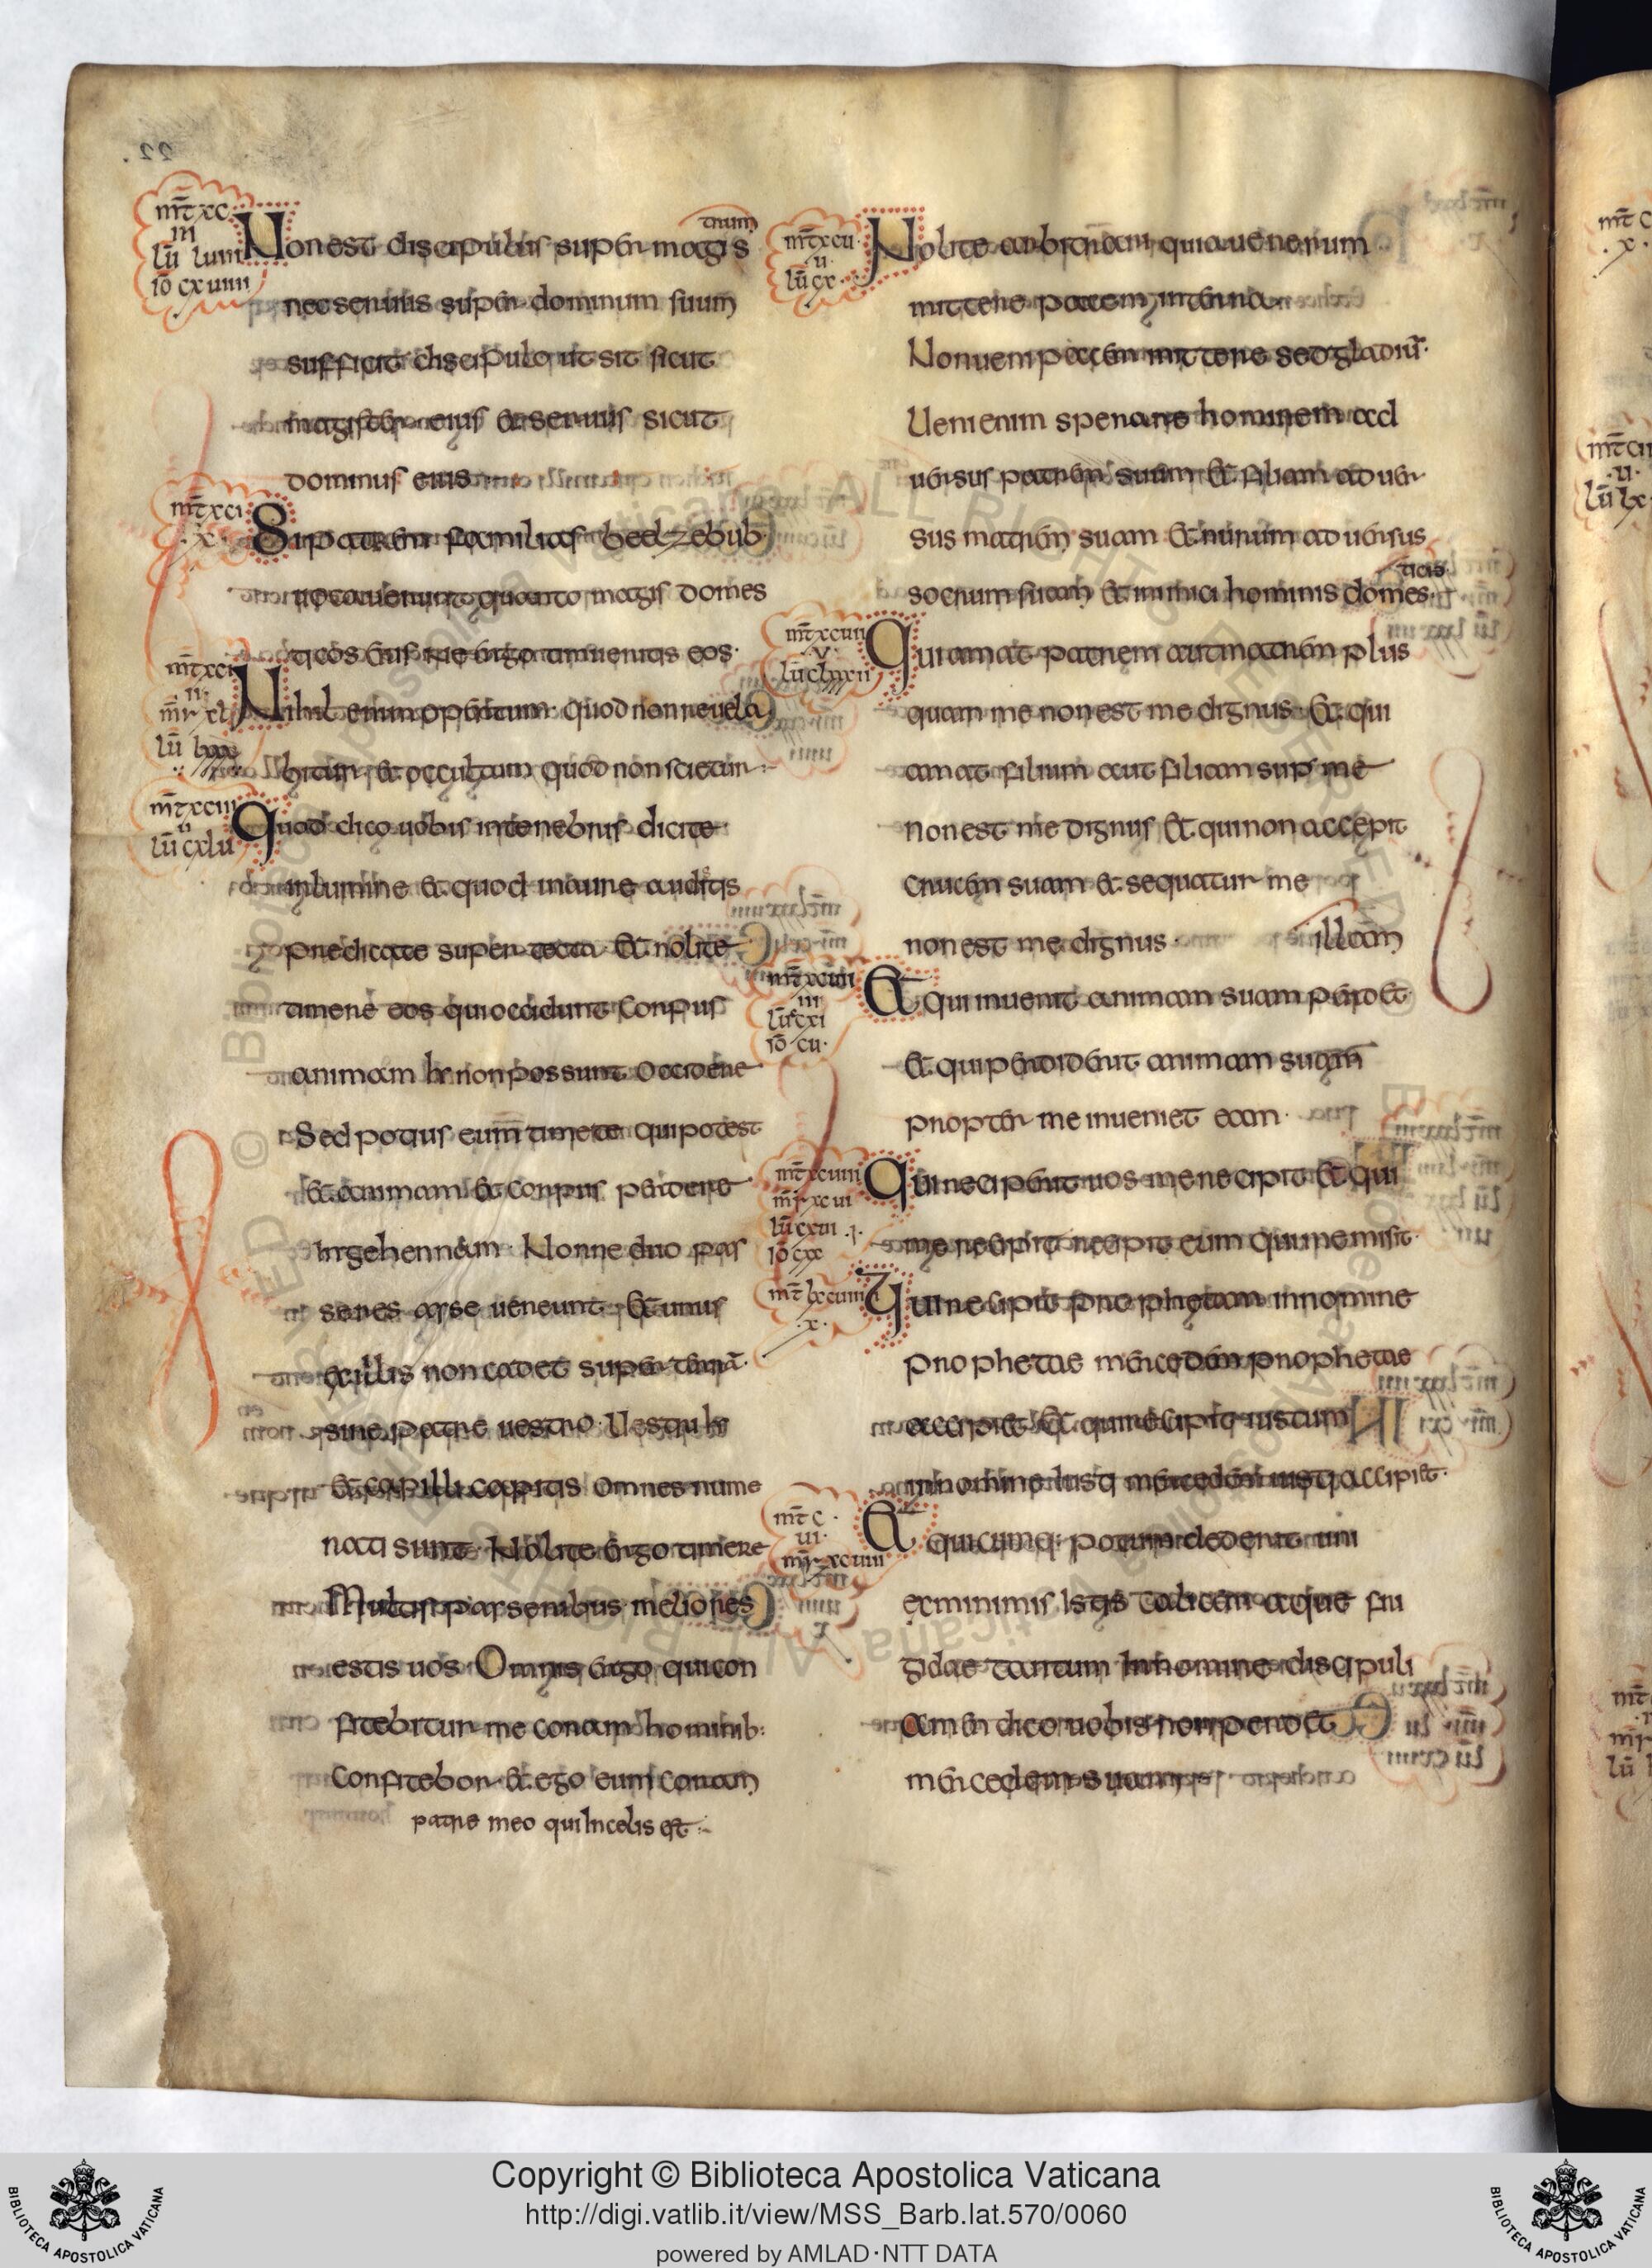 mt̄ xc
iii
lū luiii
iō cxuiiii
trum
Non est discipulus super magis
nec seruus super dominum suum
sufficit discipulo ut sit sicut
magister eius et seruus sicut
dominus eius
mt̄ xci
x
Si patrem familias beelzebub
uocauerunt quanto magis domes
ticos eius ne ergo timueritis eos
mt̄ xcii
ii
mr̄ xl
lū lxxx
Nihil enim opertum quod non reuela
bitur et occultum quod non scietur
mt̄ xciii
u
lū cxlu
Quod dico uobis in tenebris dicite
in lumine et quod in aure auditis
predicate super tecta et nolite
timere eos qui occidunt corpus
animam non possunt occidere
Sed potius eum timete qui potest
et animam et corpus perdere
in gehennam Nonne duo pas
seres asse ueneunt et unus
ex illis non cadet super terrā
sine patre uestro Uestri
et capilli capitis omnes nume
rati sunt Nolite ergo timere
Multis passeribus meliores
estis uos Omnis ergo qui con
fitebitur me coram hominib:
Confitebor et ego eum coram
patre meo qui in celis est
mt̄ xcu
u
lū cx
Nolite arbitrari quia uenerum
mittere pacem in terra
Non ueni pacem mittere sed gladiū
Ueni enim sperare hominem ad
uersus patrem suum et filiam aduer
sus matrem suam et nurum aduersus
socrum suam et inimici hominis domes
ticis
mt̄ xcuii
v
lū clxxii
Qui amat patrem aut matrem plus
quam me non est me dignus et qui
amat filium aut filiam sup me
non est me dignus et qui non accepit
crucem suam et sequatur me
non est me dignus
illam
mt̄ xcuii
iii
lū cxi
iō cu
Et qui inuenit animam suam perdet
et qui perdiderit animam suam
propter me inueniet eam
mt̄ xcuiii
mr̄ xcui
lū cxui .i.
iō cxx
Qui reciperit uos me recipit et qui
me recipit recipit eum qui me misit
mt̄ lxcuiiii
x
Qui recipit prophetam in nomine
prophetae mercedem prophetae
accipiet Et qui recipit iustum
in nomine iusti mercedem iusti accipiet
mt̄ c
ui
mr̄ xcuiiii
Et quicumq: potum dederit uni
ex minimis istis calicem aque fri
gidae tantum in nomine discipuli
amen dico uobis non perdet
mercedem suam
mt̄ c
x
mt̄ cii
u
lū lx
mt̄
mr̄
lū
Copyright © Biblioteca Apostolica Vaticana
http://digi.vatlib.it/view/MSS_Barb.lat.570/0060
powered by AMLAD·NTT DATA
BIBLIOTECA APOSTOLICA VATICANA
BIBLIOTECA APOSTOLICA VATICANA